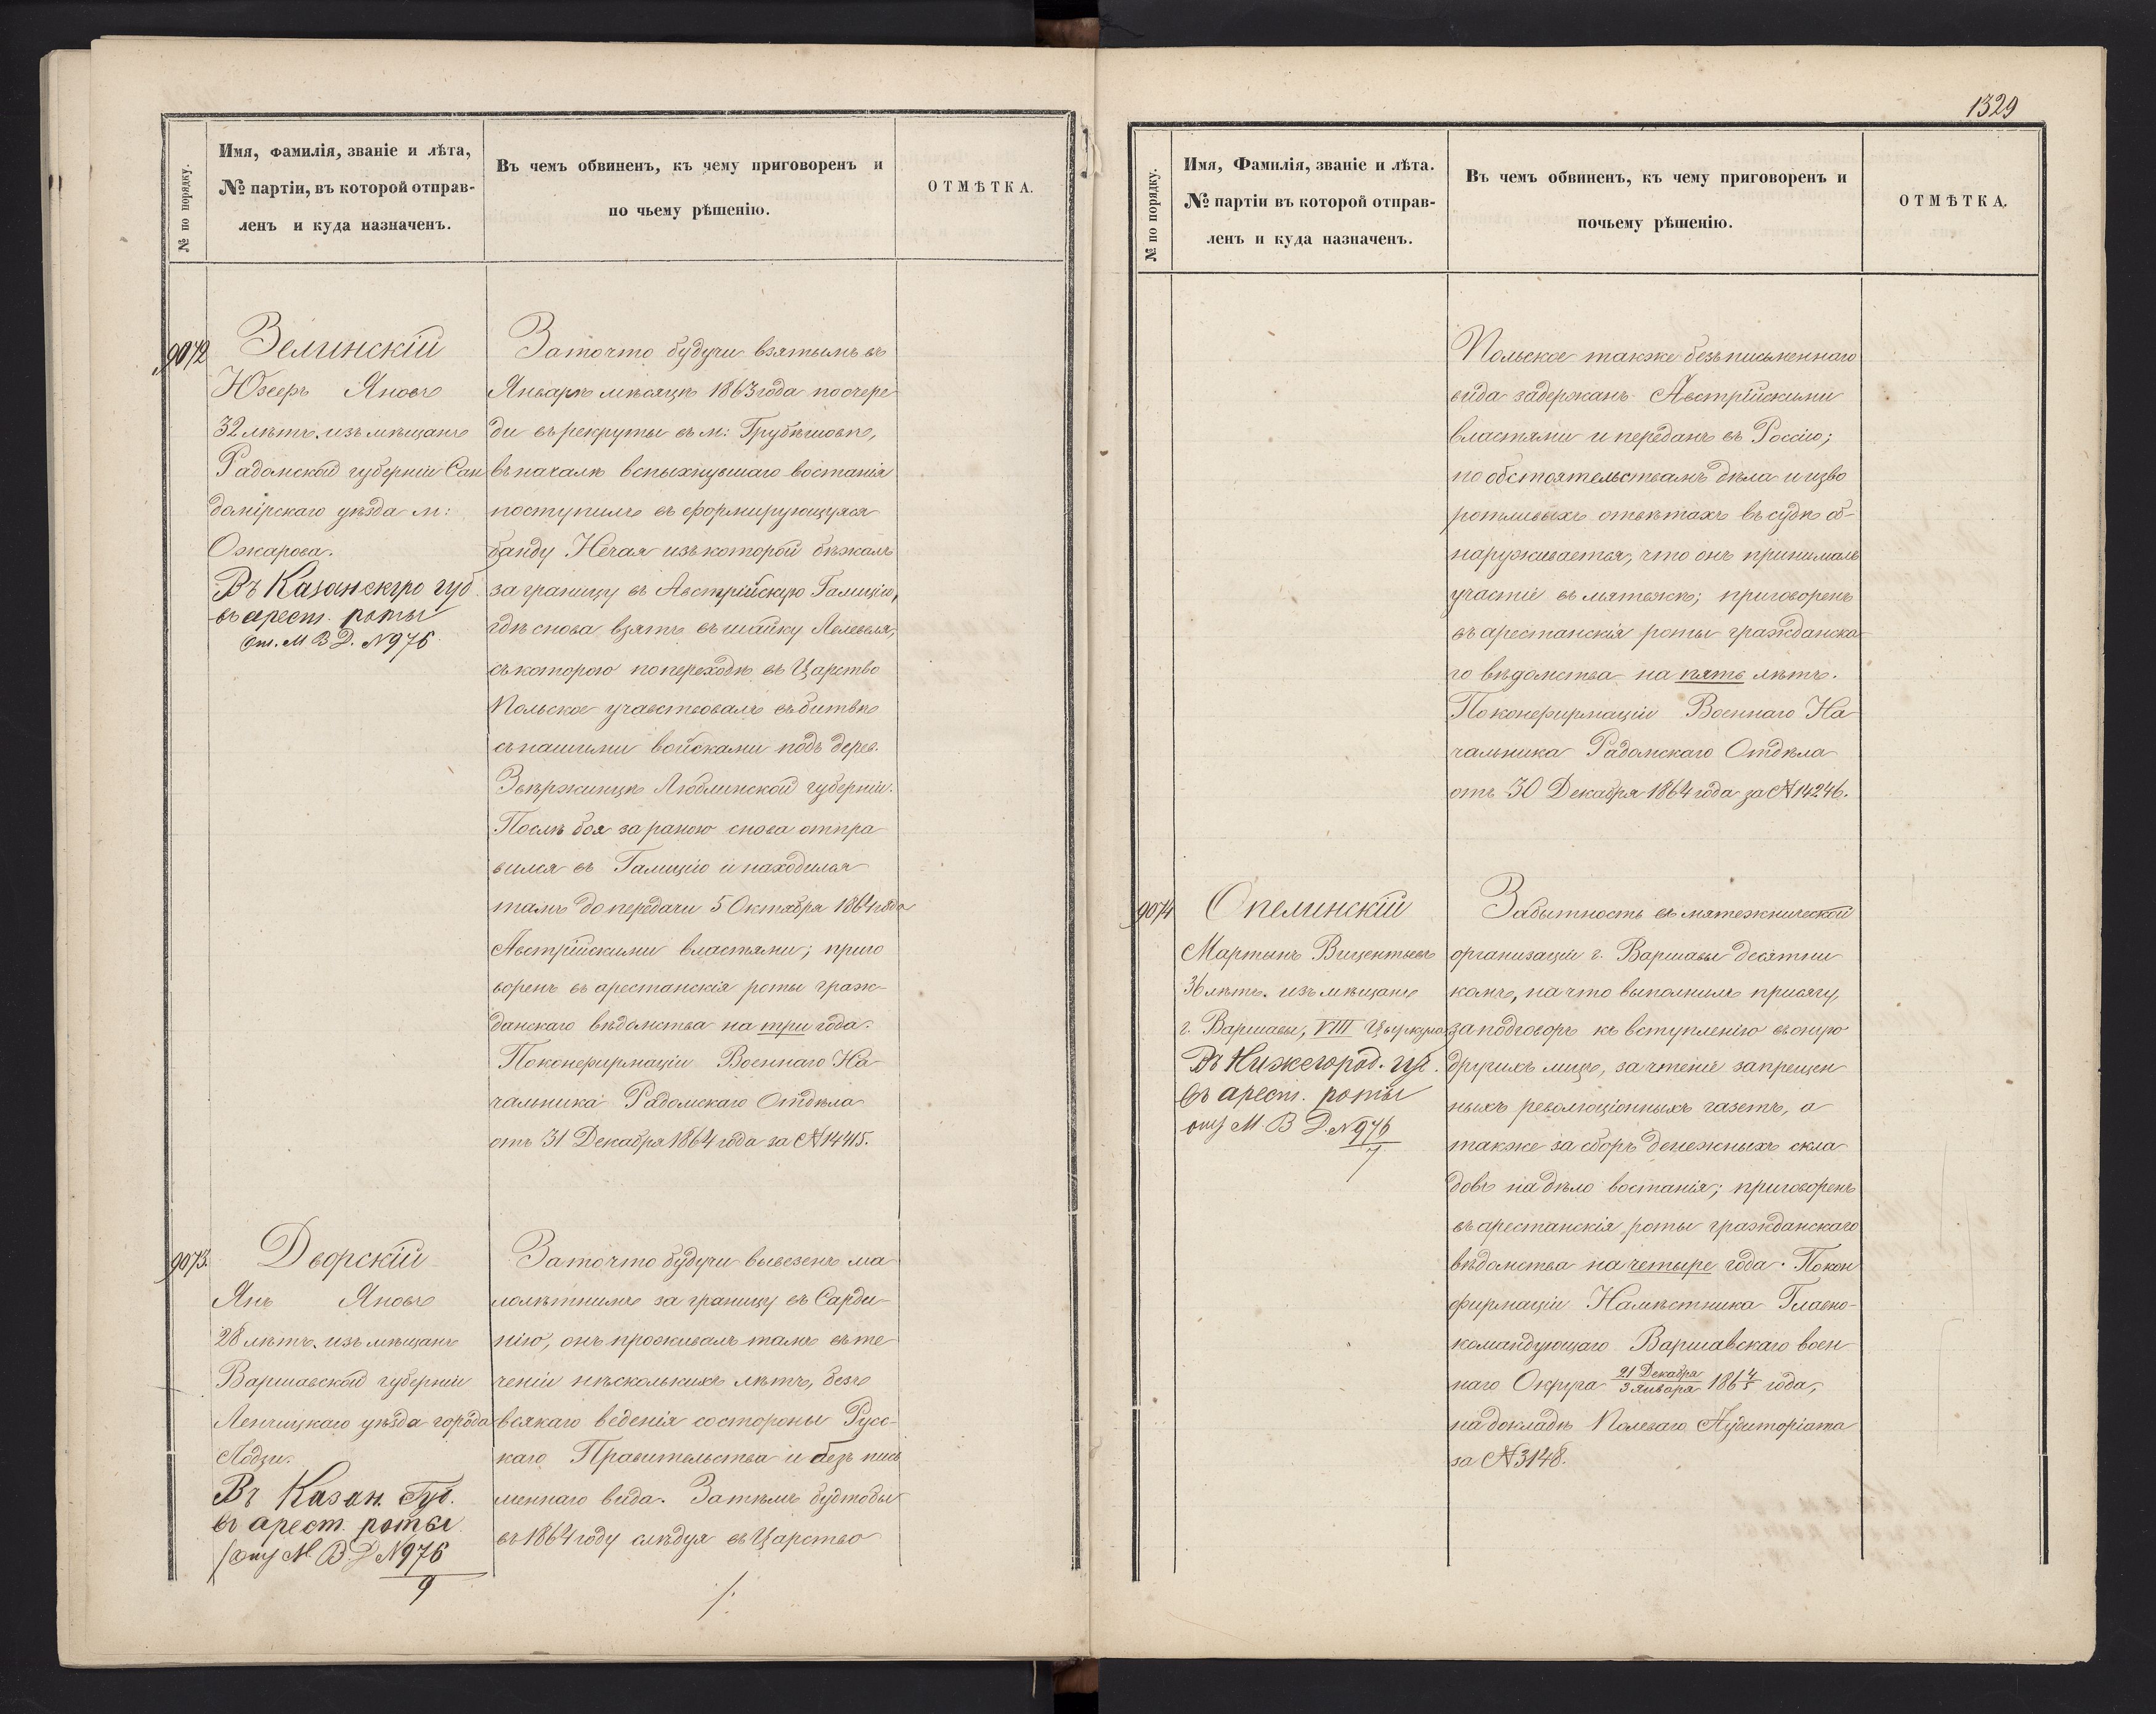 № по порядку.
Имя, фамилія, званіе и лѣта,
№ партіи, въ которой отправ-
ленъ и куда назначенъ.
Въ чемъ обвиненъ, къ чему приговоренъ и
по чьему рѣшенію.
ОТМѢТКА.
9072
Зелинскій
Юзефъ Яновъ
32 лѣтъ. изъ мѣщанъ
Радомской губерніи Сан
домірскаго уѣзда м:
Ожарова.
Въ Казанскую губ.
въ арест. роты
Отн. М В Д. N 976
За то что будучи взятымъ въ
Январѣ мѣсяцѣ 1863 года по очере
ди въ рекруты въ м: Грубѣшовѣ,
въ началѣ вспыхнувшаго востанія
поступилъ въ формирующуюся
банду Нечая изъ которой бѣжалъ
за границу въ Австрійскую Галицію,
гдѣ снова взятъ въ шайку Лелевеля,
съ которою по переходѣ въ Царство
Польское учавствовалъ въ битвѣ
съ нашими войсками подъ дерев.
Звѣржинцѣ Люблинской губерніи.
Послѣ боя за раною снова отпра
вился въ Галицію и находился
тамъ до передачи 5 Октября 1864 года
Австрійскими властями; приго
воренъ въ арестанскія роты граж-
данскаго вѣдомства на три года.
По конфирмаціи Военнаго На-
чальника Радомскаго Отдѣла
отъ 31 Декабря 1864 года за N 14415.
9073.
Дворскій
Янъ Яновъ
28 лѣтъ. изъ мѣщанъ
Варшавской губерніи
Ленчицкаго уѣзда города
Лодзи.
Въ Казан. Губ.
въ арест. роты
Отн М. В. Д N 976
9
За то что будучи вывезенъ ма
лолѣтнимъ за границу въ Сарди-
нію, онъ проживалъ тамъ въ те
ченіи нѣсколькихъ лѣтъ, безъ
всякаго веденія со стороны Русс-
каго Правительства и безъ пись
меннаго вида. Затѣмъ будтобы
въ 1864 году слѣдуя въ Царство
/.
1329
№ по порядку.
Имя, Фамилія, званіе и лѣта.
№ партіи въ которой отправ-
ленъ и куда назначенъ.
Въ чемъ обвиненъ, къ чему приговоренъ и
почьему рѣшенію.
ОТМѢТКА.
Польское также безъ письменнаго
вида задержанъ Австрійскими
властями и переданъ въ Россію;
по обстоятельствамъ дѣла и изво
ротливыхъ отвѣтахъ въ судѣ об-
наруживается, что онъ принималъ
участіе въ мятежѣ; приговоренъ
въ арестанскія роты гражданска-
го вѣдомства на пять лѣтъ.
По конфирмаціи Военнаго На-
чальника Радомскаго Отдѣла
отъ 30 Декабря 1864 года за N 14246.
9074
Опелинскій
Мартынъ Вицентьевъ
36 лѣтъ. изъ мѣщанъ
г. Варшавы, VIII Цыркула
Въ Нижегород. губ.
въ арест. роты
отн М. В Д. N 976
7
За бытность въ мятежнической
организаціи г. Варшавы десятни
комъ, на что выполнилъ присягу,
за подговоръ къ вступленію въ оную
другихъ лицъ, за чтеніе запрещен
ныхъ революціонныхъ газетъ, а
также за сборъ денежныхъ скла
довъ на дѣло востанія; приговоренъ
въ арестанскія роты гражданскаго
вѣдомства на четыре года. По кон
фирмаціи Намѣстника Главно-
командующаго Варшавскаго воен
наго Округа 21 Декабря / 3 Января 186 4/5 года,
на докладѣ Полеваго Аудиторіата
за N 3148.